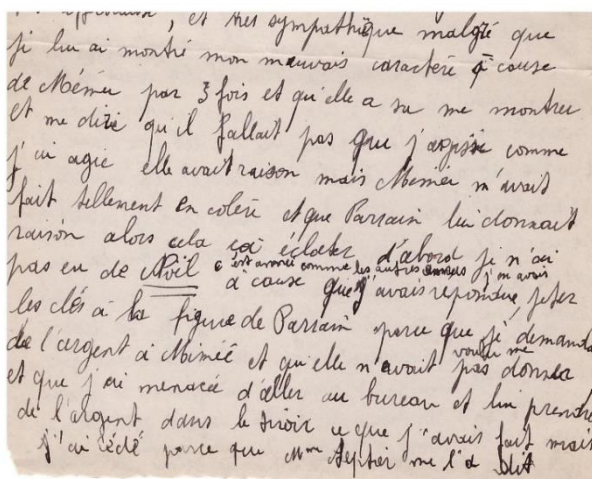 et très sympathique malgré que
je lui ai montré mon mauvais caractère à cause
de Mémée par 3 fois et qu'elle a su me montrer
et me dire qu'il fallait pas que j'agisse comme
j'ai agie elle avait raison mais Mémée m'avait
fait tellement en colère et que Parrain lui donnait
raison alors cela éclater d'abord je n'ai
pas eu de Noël c'est année comme les autres années j'en avais
à cause que j'avais repondue, jeter
les clés à la figure de Parrain parce que je demandais
de l'argent à Mimée et qu'elle n'avait pas voulu me donner
et que j'ai menacée d'aller au bureau et lui prendre
de l'argent dans le tiroir ce que j'avais fait mais
j'ai cédé parce que Mme me l'a dit